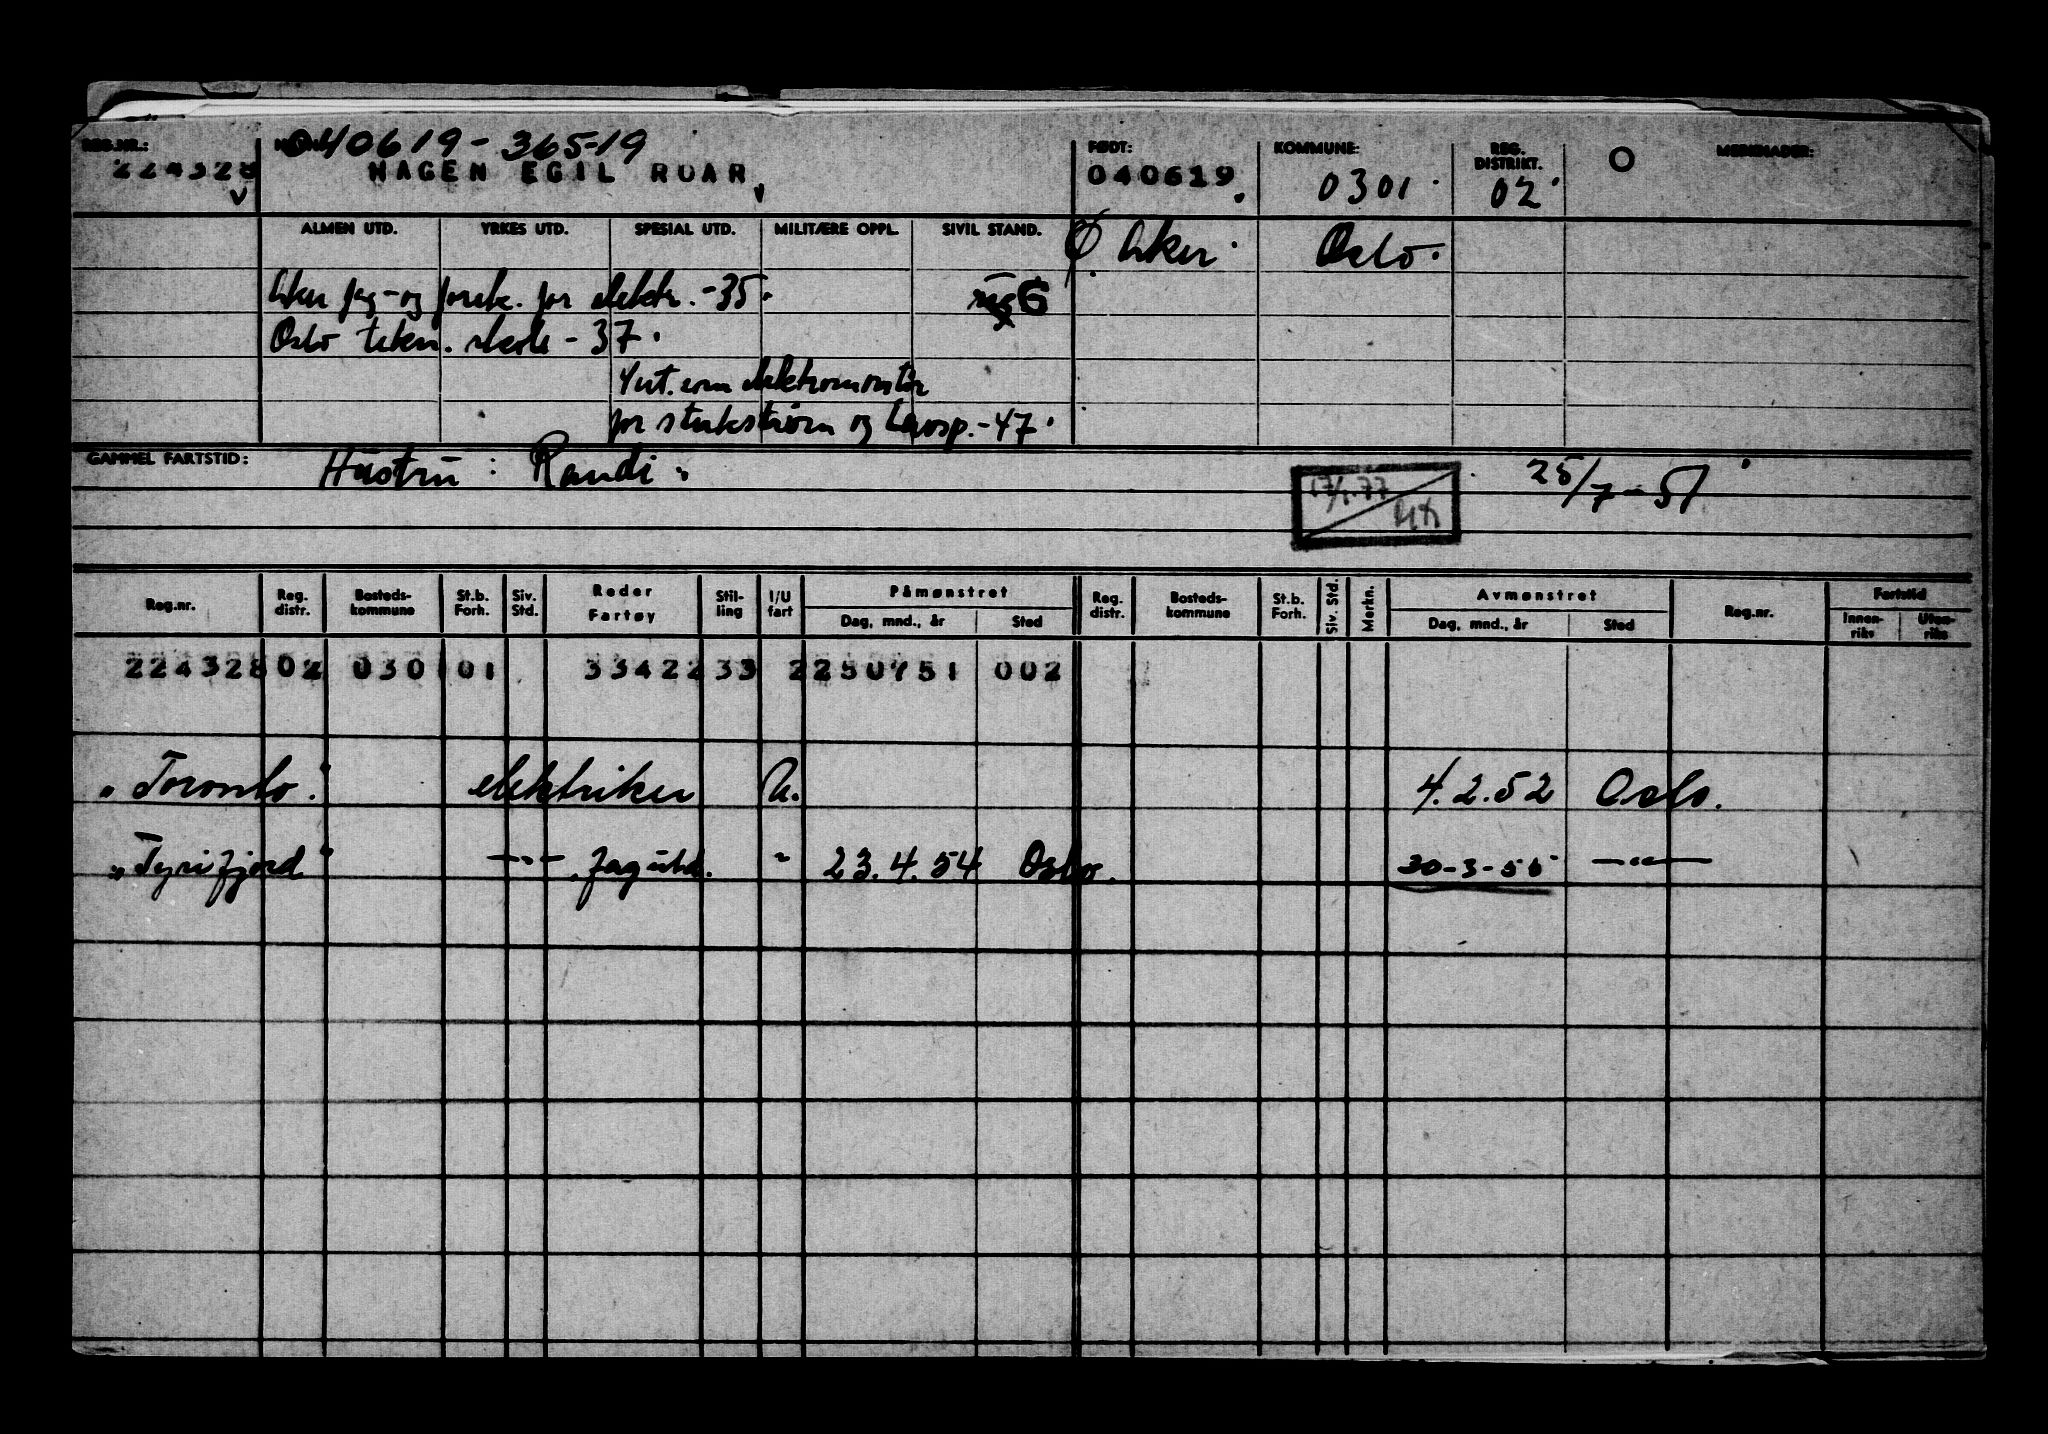 REG.NR.: 040619-36519 FØDT: KOMMUNE: REG. DISTRIKT. O MERKNADER:
224328 HAGEN EGIL ROAR 040619. 0301. 02.
ALMEN UTD. YRKES UTD. SPESIAL UTD. MILITÆRE OPPL. SIVIL STAND. Ø. Aker. Oslo.
Aker fag-og forsk. for elektr. -35. G
Oslo tekn. skole -37.
Aut. som elektromontør
for sterkstrøm og Lavsp. -47.
GAMMEL FARTSTID: Hustru: Randi. 25/7-51
17/1.77
Reg.nr. Reg. distr. Bosteds-kommune St.b. Forh. Siv. Std. Reder Fartøy Stil-ling I/U fart Påmønstret Dag, mnd., år Sted Reg. distr. Bosteds-kommune St.b. Forh. Siv. Std. Merkn. Avmønstret Dag, mnd., år Sted Reg.nr. Fartstid Innen-riks Uten-riks
224328 02 0301 01 33422 33 2 250751 002
"Toronto". elektriker U. 4.2.52 Oslo.
"Tyrifjord" -"- fagutd. " 23.4.54 Oslo. 30-3-55 -"-